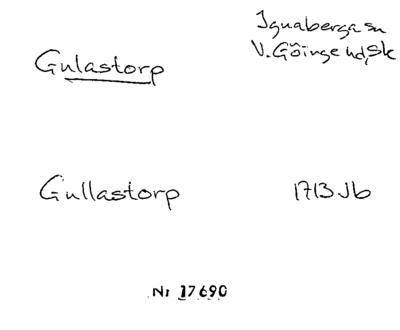 Ignaberga sn
V. Göinge hd, Sk
Gulastorp
Gullastorp
1713 Jb
Nr 17690